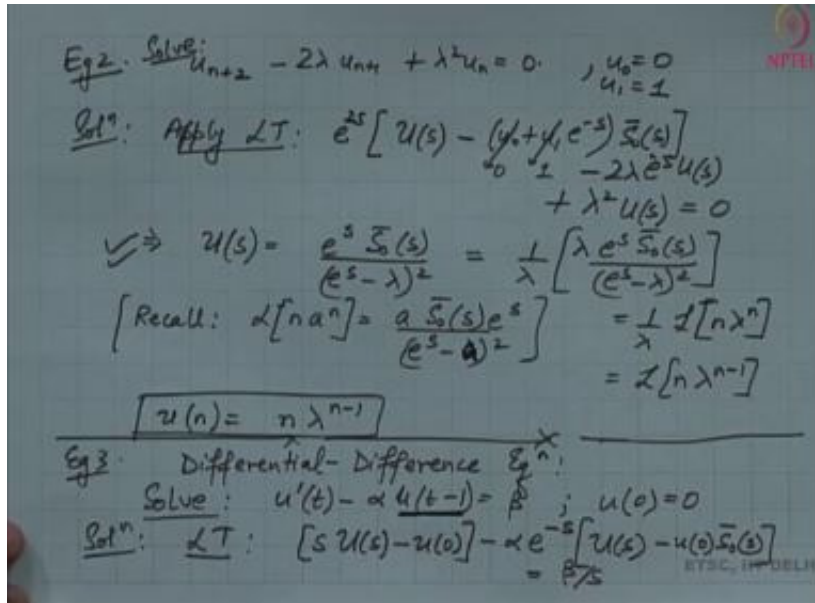 Eg 2. Solve: u_{n+2} - 2λ u_{n+1} + λ² u_n = 0. , u_0 = 0
u_1 = 1
NPTEL
Solⁿ: Apply LT: e^{2s} [ U(s) - (u_0 + u_1 e^{-s}) S̄_0(s) ]
0 1 - 2λ e^s U(s)
+ λ² U(s) = 0
✓⇒ U(s) = e^s S̄_0(s) / (e^s - λ)² = 1/λ [ λ e^s S̄_0(s) / (e^s - λ)² ]
[ Recall: L[n aⁿ] = a S̄_0(s) e^s / (e^s - a)² ] = 1/λ L[n λⁿ]
= L[n λ^{n-1}]
u(n) = n λ^{n-1}
Eg 3. Differential-Difference Eqⁿ:
Solve: u'(t) - α u(t-1) = β ; u(0) = 0
Solⁿ: LT: [s U(s) - u(0)] - α e^{-s} [U(s) - u(0) S̄_0(s)]
= β/s
ETSC, IIT DELHI